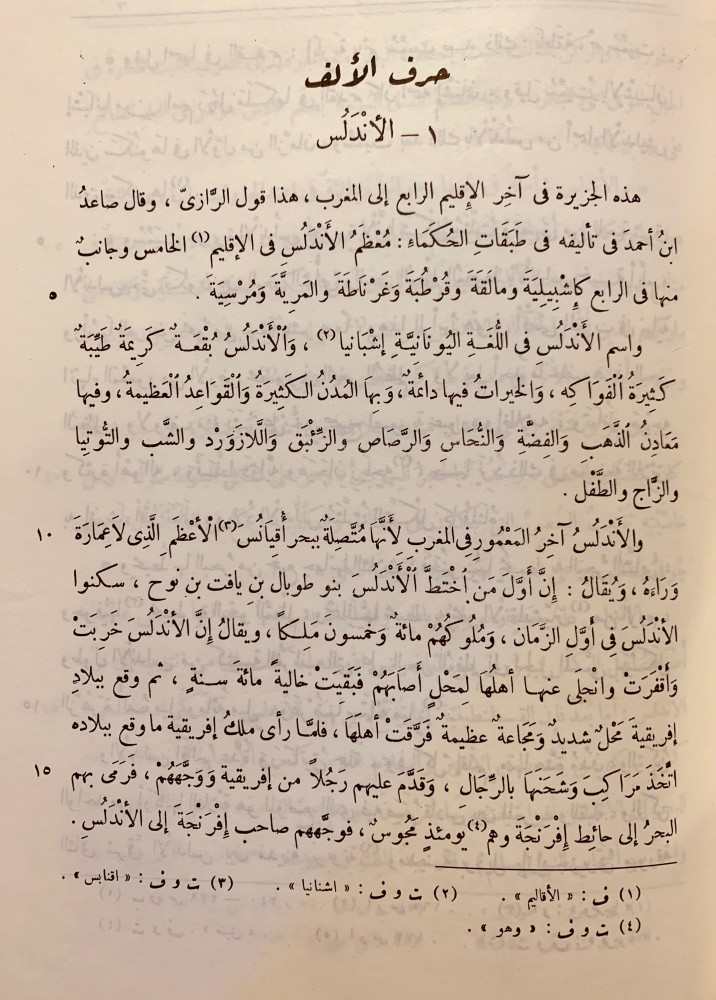 حرف الألف
١ – الأنْدَلُس
هذه الجزيرة فى آخِر الإِقليم الرابع إلى المغرب ، هذا قول الرَّازىّ ، وقال صاعدُ
ابنُ أحمدَ فى تأليفه فى طَبَقَاتِ الحُكَمَاءِ : مُعْظَمُ الأَنْدَلُسِ فى الإقليم(١) الخامس وجانبٌ
منها فى الرابع كَإِشْبِيلِيَةَ ومالَقَةَ وقُرْطُبَةَ وغَرْناطَةَ والمَرِيَّةَ ومُرْسِيَةَ .
٥
واسم الأَنْدَلُسِ فى اللُّغَةِ اليُونَانِيَّةِ إشْبَانيا(٢) ، وَٱلْأَنْدَلُسُ بُقْعَةٌ كَرِيمَةٌ طَيِّبَةٌ
كَثِيرَةُ ٱلْفَوَاكِهِ ، وَالخيراتُ فيها دائمةٌ ، وَبِهَا المُدُنُ الكَثِيرَةُ وَٱلْقَوَاعِدُ ٱلْعَظيمةُ ، وفيها
مَعَادِنُ ٱلذَّهَبِ وَالفِضَّةِ وَالنُّحَاسِ وَالرَّصَاصِ وَالزِّئْبَقِ وَاللَّازَوَرْد والشَّب والتُّوتِيا
والزَّاج والطَّفْل .
والأَنْدَلُسُ آخِرُ المَعْمُورِ فى المغرب لِأَنَّهَا مُتَّصِلَةٌ ببحر أُقِيَانُسَ(٣) ٱلْأَعْظَمِ الَّذِى لَاعِمَارَةَ
١٠
وَرَاءَهُ ، وَيُقَالُ : إِنَّ أَوَّلَ مَنِ ٱخْتَطَّ ٱلْأَنْدَلُسَ بنو طوبال بنِ يافت بنِ نوح ، سكنوا
الأَنْدَلُسَ فِى أَوَّلِ الزَّمَانِ ، وَمُلُوكُهُمْ مائةٌ وَخمسونَ مَلِكاً ، ويقالُ إِنَّ الأَنْدَلُسَ خَرِبَتْ
وَأَقْفَرَتْ وانْجَلَى عنها أهلُهَا لِمَحْلٍ أَصَابَهُمْ فَبَقِيَتْ خاليةً مائةَ سنةٍ ، ثم وقع ببلادِ
إفريقيةَ مَحْلٌ شديدٌ وَمَجَاعةٌ عظيمةٌ فَرَّقَتْ أهلَهَا ، فلمَّا رأى ملكُ إفريقية ما وقع ببلاده
ٱتَّخَذَ مَرَاكِبَ وَشَحَنَهَا بالرِّجَالِ ، وَقَدَّمَ عليهم رَجُلاً من إفريقية وَوَجَّهَهُمْ ، فَرَمَى بهم
١٥
البحرُ إلى حائطِ إفْرَنْجَةَ وهم(٤) يومئذٍ مَجُوسٌ ، فوجَّههم صاحب إفْرَنْجَةَ إلى الأنْدَلُسِ .
(١) ف : « الأقاليم » . (٢) ت و ف : « اشنانيا » . (٣) ت و ف : « اقنابس » .
(٤) ت و ف : « وهو » .